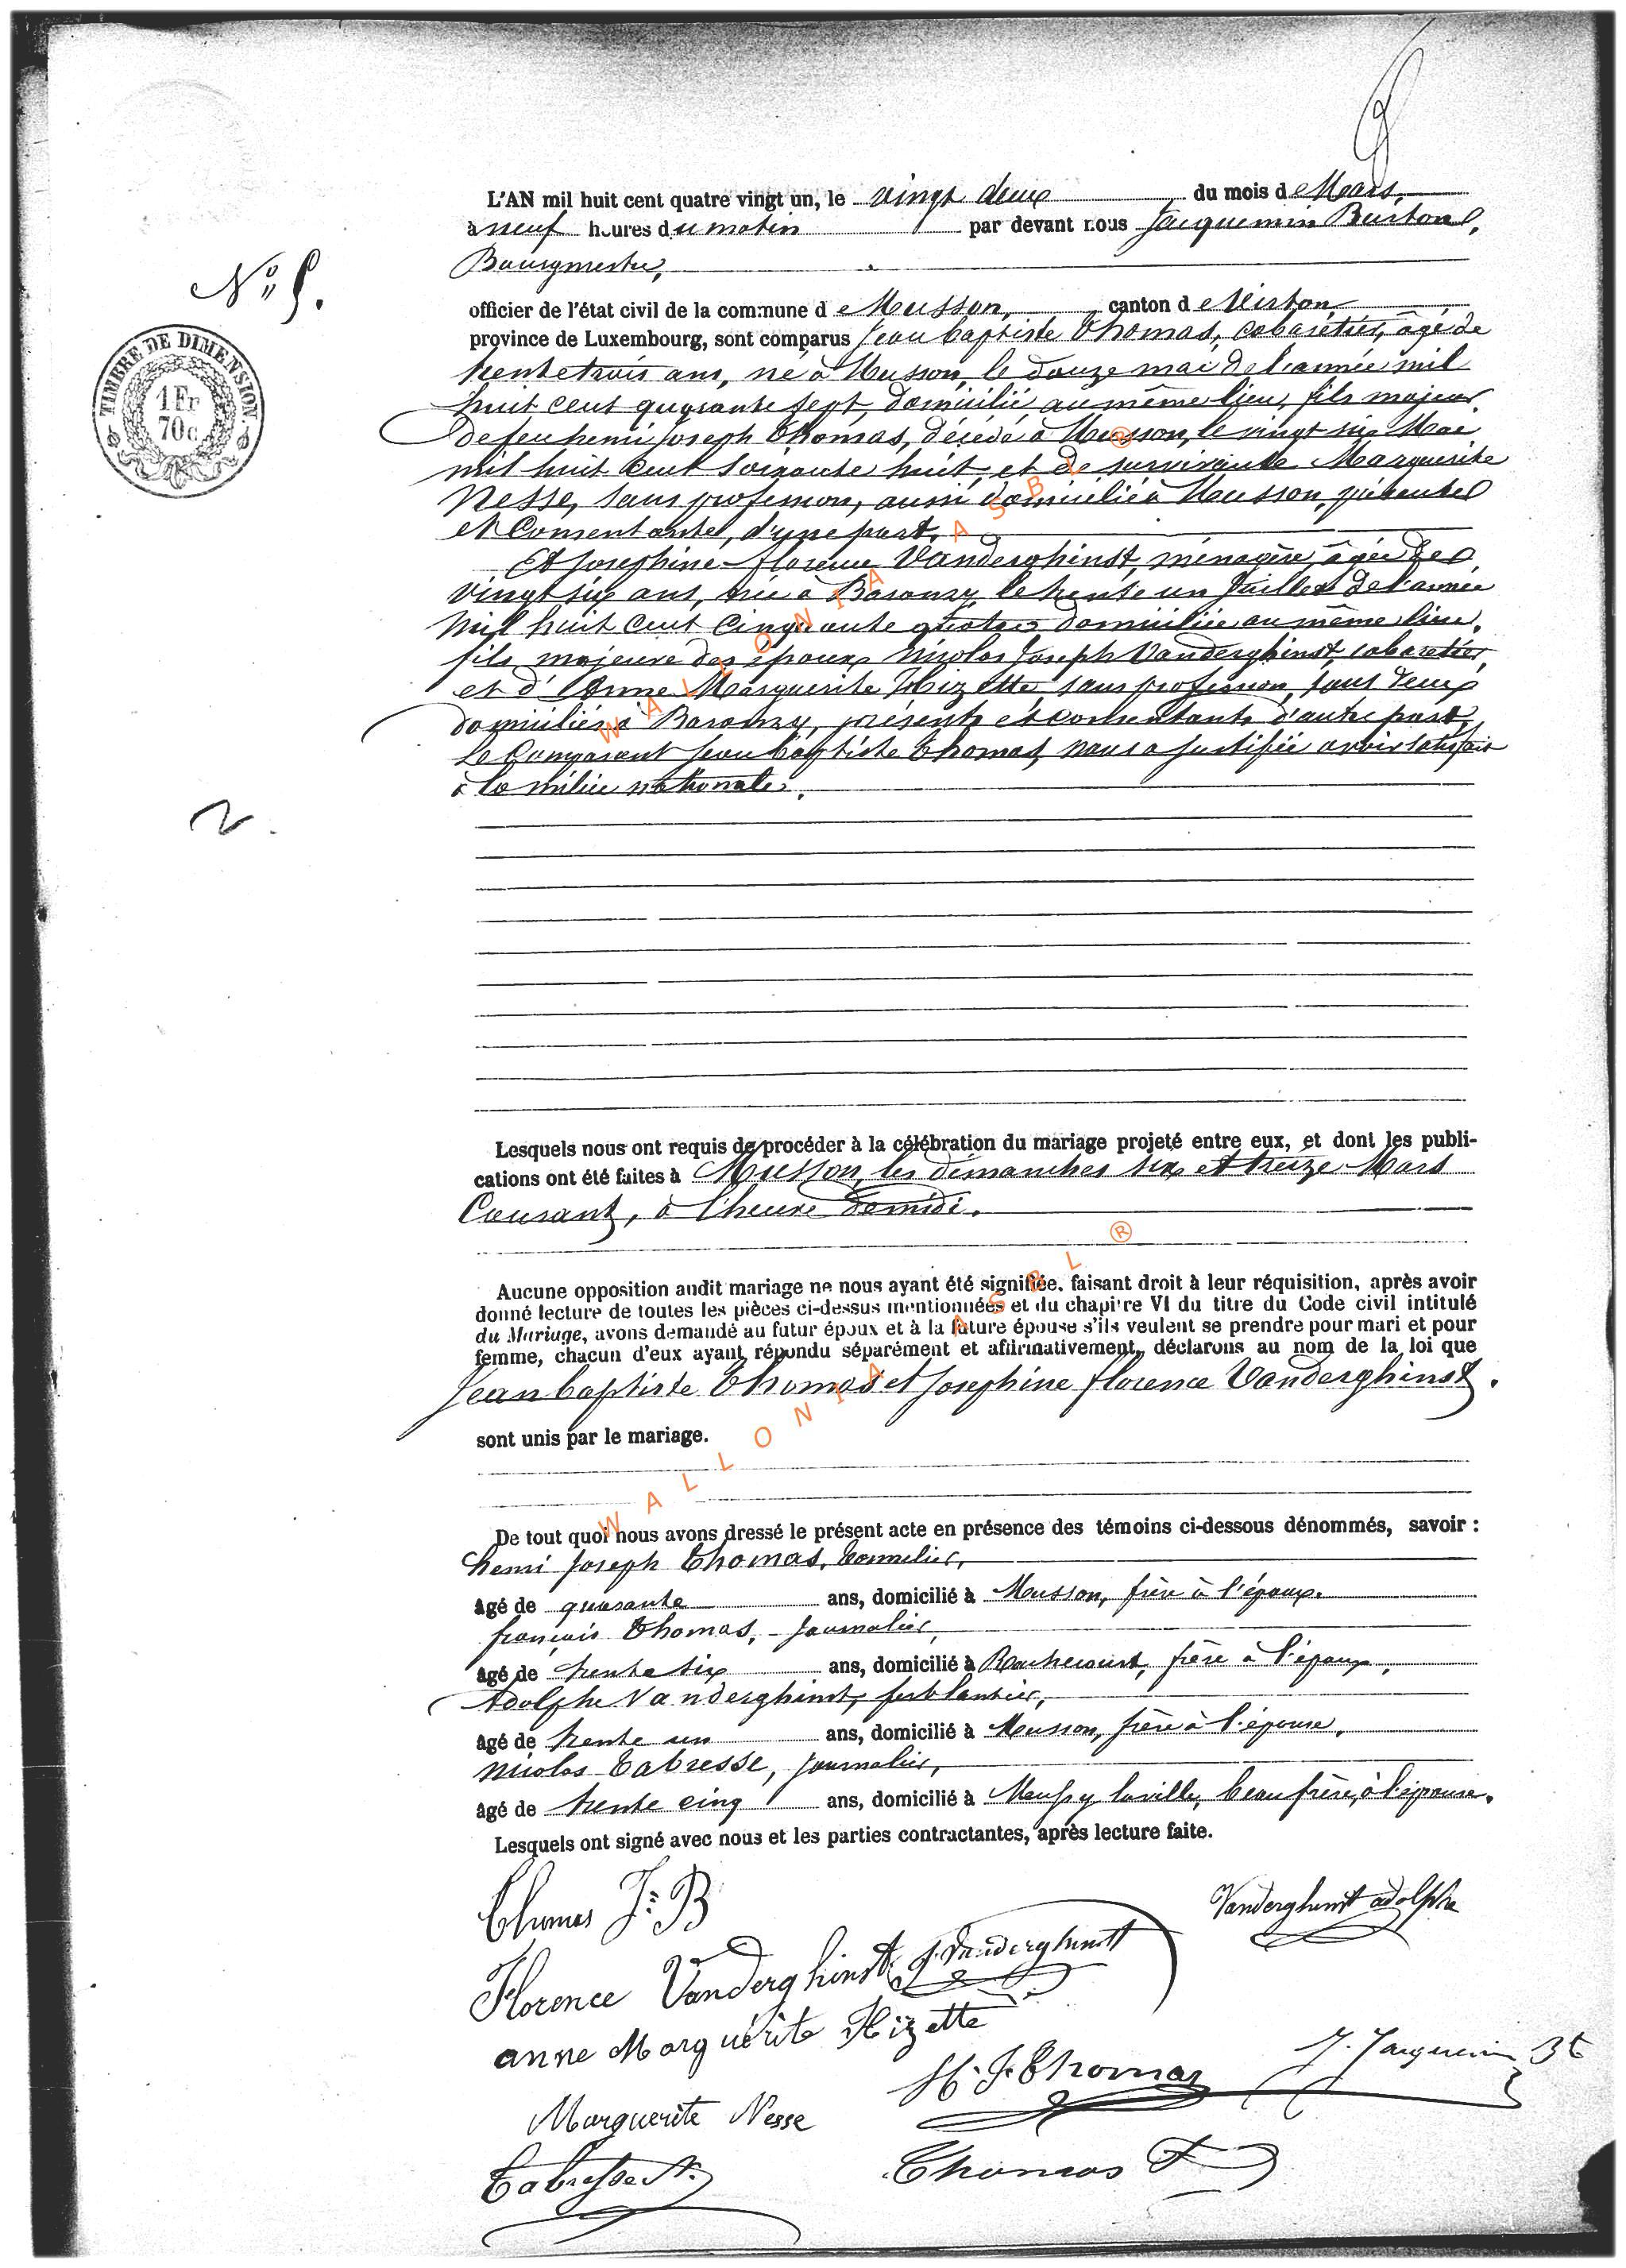 L'AN mil huit cent quatre vingt un, le vingt deux du mois de Mars,
à neuf heures du matin par devant nous Jacquemin Burton,
Bourgmestre,
N° 5.
officier de l'état civil de la commune de Musson, canton de Virton
province de Luxembourg, sont comparus Jean baptiste Thomas, cabaretier, âgé de
TIMBRE DE DIMENSION
1 Fr
70 c
trente trois ans, né à Musson, le douze mai de l'année mil
huit cent quarante sept, domicilié au même lieu, fils majeur
de feu henri Joseph Thomas, décédé à Musson, le vingt six Mai
mil huit cent soixante huit, et de survivante Marguerite
Nesse, sans profession, aussi domiciliée à Musson, présente
et Consentante, d'une part.
Et Josephine florence Vanderghinst, ménagère, âgée de
vingt six ans, née à Baranzy le trente un Juillet de l'année
mil huit cent cinquante quatre domiciliée au même lieu,
fille majeure des époux Nicolas Joseph Vanderghinst, cabaretier,
et d'Anne Marguerite Hizette, sans profession, tous deux
domiciliés à Baranzy, présents et consentants d'autre part,
Le Comparant Jean baptiste Thomas, nous a justifié avoir satisfait
à la milice nationale.
2.
Lesquels nous ont requis de procéder à la célébration du mariage projeté entre eux, et dont les publi-
cations ont été faites à Musson, les dimanches six et treize Mars
Courant, à l'heure de midi.
Aucune opposition audit mariage ne nous ayant été signifiée, faisant droit à leur réquisition, après avoir
donné lecture de toutes les pièces ci-dessus mentionnées et du chapitre VI du titre du Code civil intitulé
du Mariage, avons demandé au futur époux et à la future épouse s'ils veulent se prendre pour mari et pour
femme, chacun d'eux ayant répondu séparément et affirmativement, déclarons au nom de la loi que
Jean baptiste Thomas et Josephine florence Vanderghinst.
sont unis par le mariage.
De tout quoi nous avons dressé le présent acte en présence des témoins ci-dessous dénommés, savoir :
henri Joseph Thomas, tonnelier,
âgé de quarante ans, domicilié à Musson, frère à l'époux.
françois Thomas, Journalier,
âgé de trente six ans, domicilié à Rachecourt, frère à l'époux,
Adolphe Vanderghinst, ferblantier,
âgé de trente un ans, domicilié à Musson, frère à l'épouse,
Nicolas Tabresse, journalier,
âgé de trente cinq ans, domicilié à Meussy laville, beau frère, à l'épouse.
Lesquels ont signé avec nous et les parties contractantes, après lecture faite.
Thomas J: B
Vanderghinst adolphe
Florence Vanderghinst J. Vanderghinst
anne Marguérite Hizette
H. J. Thomas
J. Jacquemin Bt
Marguerite Nesse
Tabresse N.
Thomas F
WALLONIA ASBL ®
WALLONIA ASBL ®